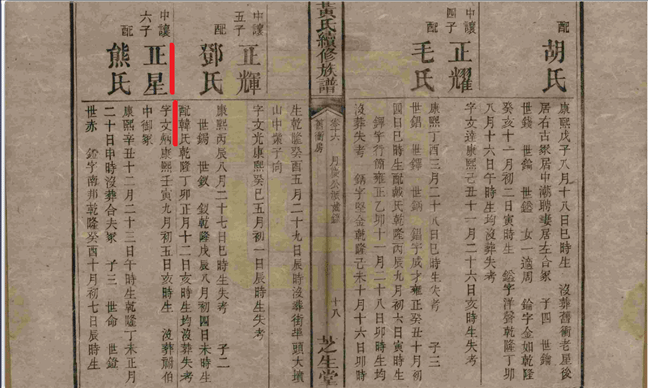 配
胡氏
康熙戊子八月十八日巳時生 沒葬舊衛老屋後
居右古冢居中潮聘妻居左合冢 子四 世鐘
世錢 世鎰 世鎧 女一適周 鎰字金如乾隆
癸亥十一月初二日寅時生 鎧字洋聲乾隆丁卯
八月十六日午時生均沒葬失考
中讓
四子
正耀
字文達康熙己丑十一月二十六日亥時生
配
毛氏
康熙丁酉三月二十八日巳時生失考 子三
世錩 世鐸 世錫 錩字成才雍正癸丑十月初
四日巳時生配戴氏乾隆丙辰九月初六日寅時生
鐸字行簡雍正乙卯十一月二十八日卯時生
沒葬失考 錫字堅金乾隆己未十月十六日卯時
黃氏續修族譜
卷十六
舊衛房
十八
敦生堂
生乾隆癸酉五月二十九日辰時沒葬街埠頭大墳
山中業子向
中讓
五子
正輝
字文光康熙癸巳五月初一日辰時生失考
配
鄧氏
康熙丙辰八月二十七日巳時生失考 子二
世錫 世釹 釹乾隆戊辰八月初四日未時生
配韓氏乾隆丁卯正月十二日亥時生均沒葬失考
中讓
六子
正星
字文炳康熙壬寅九月初五日亥時生 沒葬船伯
中御冢
配
熊氏
康熙辛丑十二月二十三日午時生乾隆丁未正月
二十日申時沒葬合夫冢 子三 世命 世鐙
世赤 鐙字南邦乾隆癸酉十月初七日辰時生